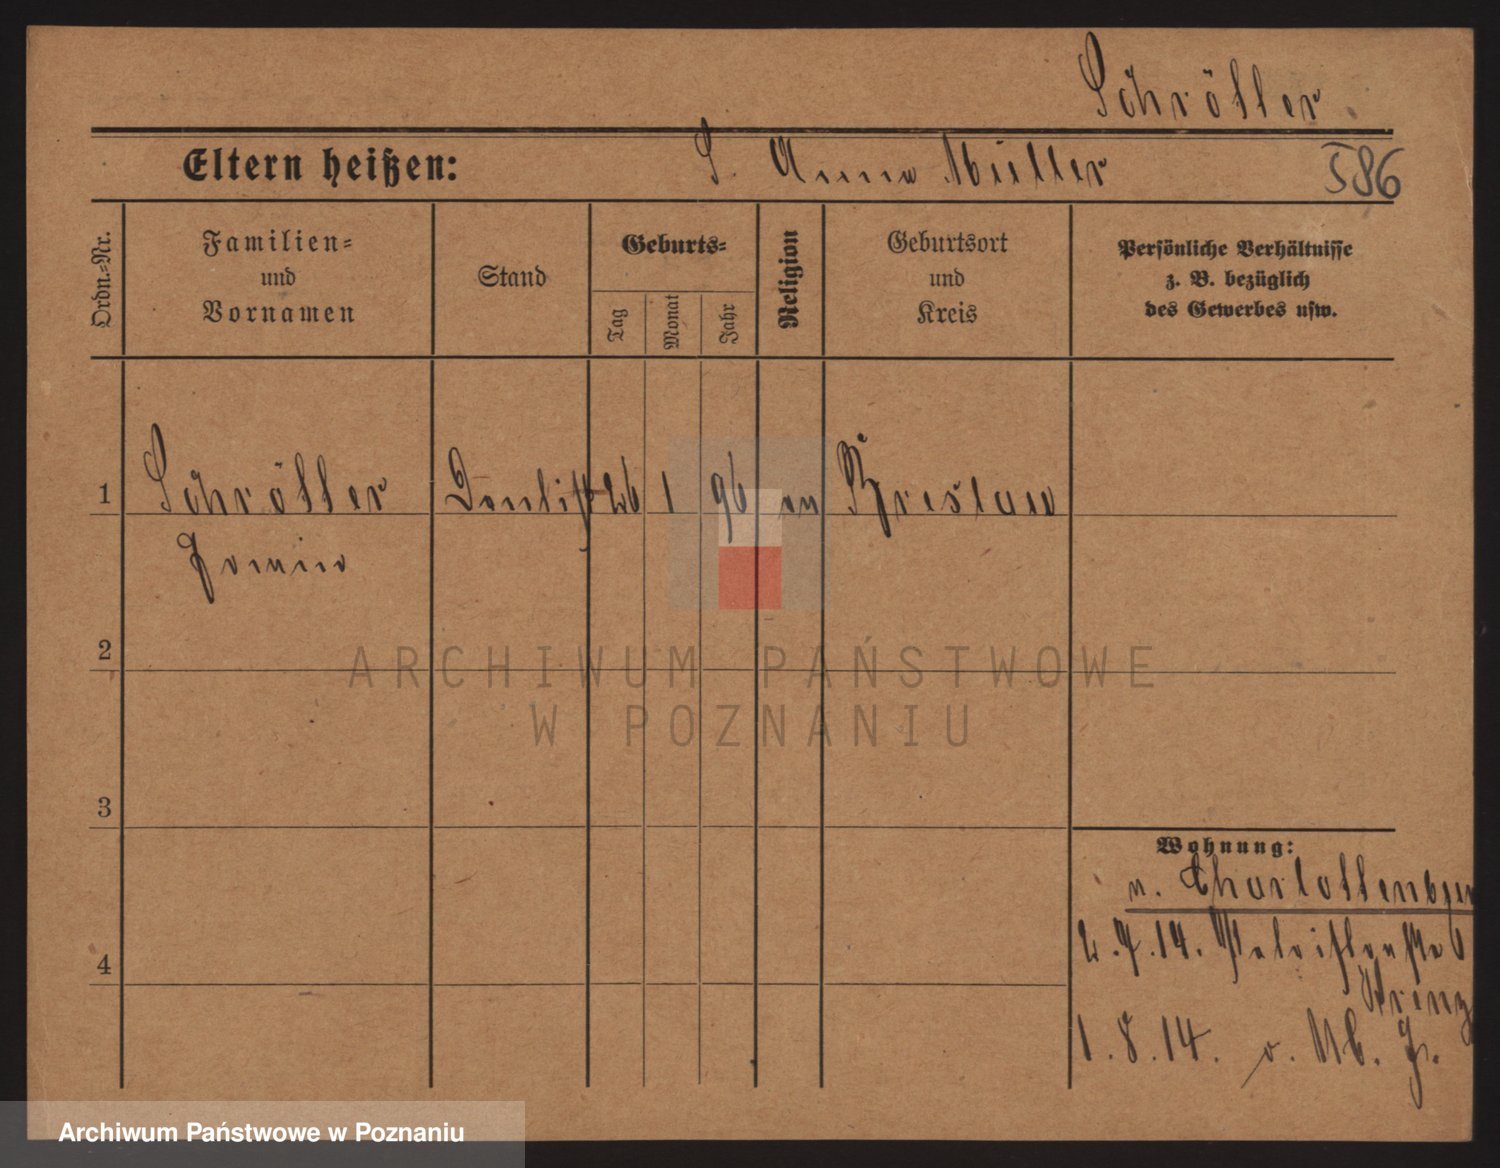 Schröller
Eltern heißen: S. Anna Müller 586
Ordn.-Nr.
Familien- und Vornamen
Stand
Geburts-
Tag
Monat
Jahr
Religion
Geburtsort und Kreis
Persönliche Verhältnisse z. B. bezüglich des Gewerbes usw.
1 Schröller 26 1 96 Breslau
2
3
4
Wohnung:
n. Charlottenburg
2.7.14.
Prinz
1.8.14. v.
ARCHIWUM PAŃSTWOWE
W POZNANIU
Archiwum Państwowe w Poznaniu